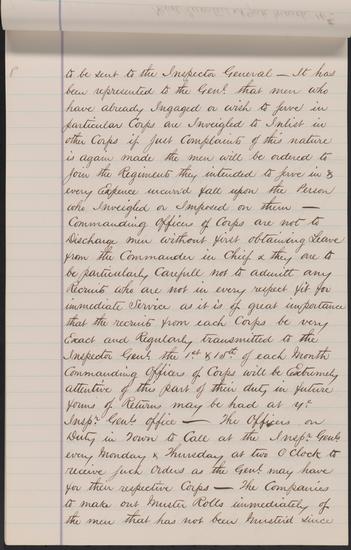 to be sent to the Inspector General — It has
been represented to the Genl. that men who
have already Ingaged or wish to serve in
particular Corps are Inveigled to Inlist in
other Corps if just Complaints of this nature
is again made the men will be ordered to
join the Regiments they intended to serve in &
every Expence incurr'd fall upon the Person
who Inveigled or Imposed on them —
Commanding Officers of Corps are not to
Discharge men without first obtaining Leave
from the Commander in Chief & they are to
be particularly Carefull not to admitt any
Recruit who are not in every respect fit for
immediate Service as it is of great importance
that the recruits from each Corps be very
Exact and Regularly transmitted to the
Inspector Genl. the 1st & 15th of each Month
Commanding Officers of Corps will be Extremely
attentive of this part of their duty in future
forms of Returns may be had at ye
Inspr. Genls office — The Officers on
Duty in Town to Call at the Inspr. Genls
every Monday & Thursday at two O Clock to
receive such Orders as the Genl. may have
for their respective Corps — The Companies
to make out Muster Rolls immediately of
the men that has not been Muster'd since